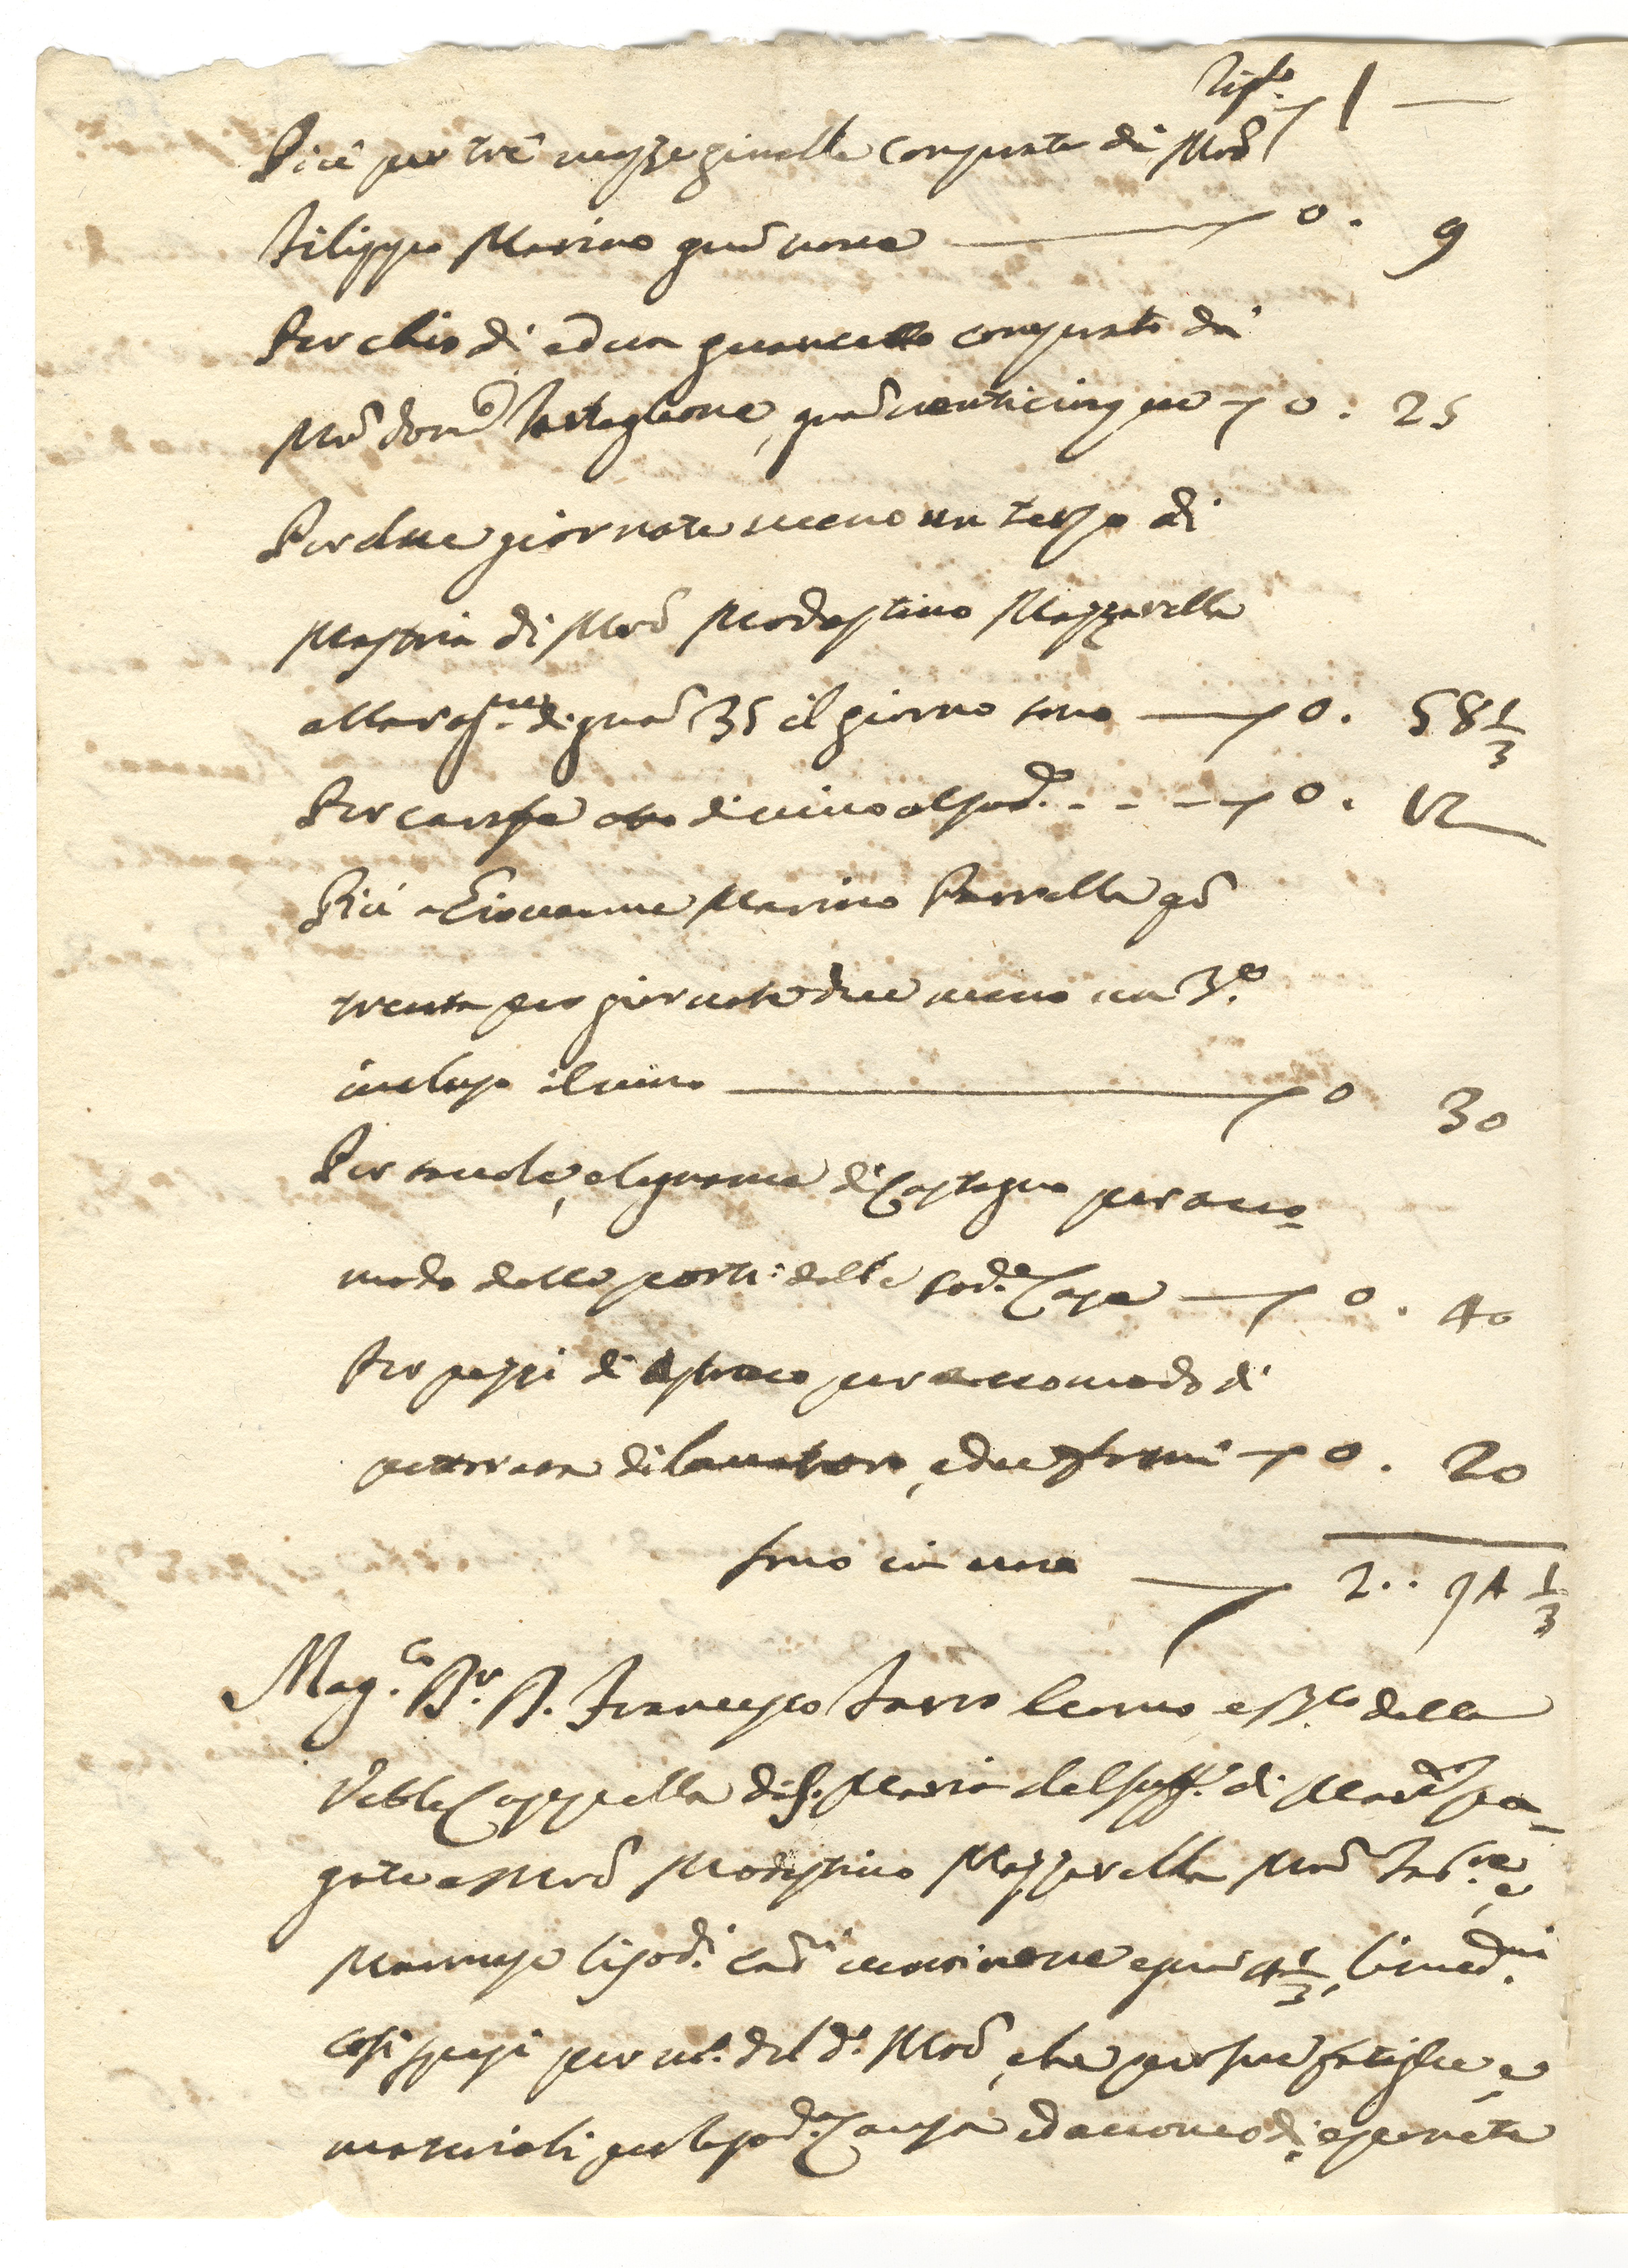 Rip.to 1 —
Più per trè mezze ginelle comprate da Mro
Filippo Marino gra nove — 0. 9
Per chiodi ed un guancetto comprato da
Mro Dom.co Tartaglione, gra venticinque 0. 25
Per due giornate meno un terzo di
Mastria di Mro Modestino Mazzarella
alla rag.ne di gra 35 il giorno sono — 0. 58 1/3
Per carafe otto di vino al sud.o - - - 0. 12
Più a Giovanne Marino Parrella gra
trenta per giornate due meno un 3.o
incluso il vino — 0 30
Per tavole, e legname di Castagno per acco-
modo delle porte delle sod.e Case — 0. 40
Per pezzi di astraco per accomodo di
, e due 0. 20
sono in uno — 2.. 94 1/3
Mag.co Dr. D. Francesco Iavro, e della
Veble Cappella di S. Maria del Suff. di pa-
gate a Mro Modestino Mazzarella Mro Fab.re, e
li sod.i e gra 4 1/3, li med.mi
così spesi per del d.o Mro, che per sue fatighe, e
materiali per le sod.e Case ed accomodi